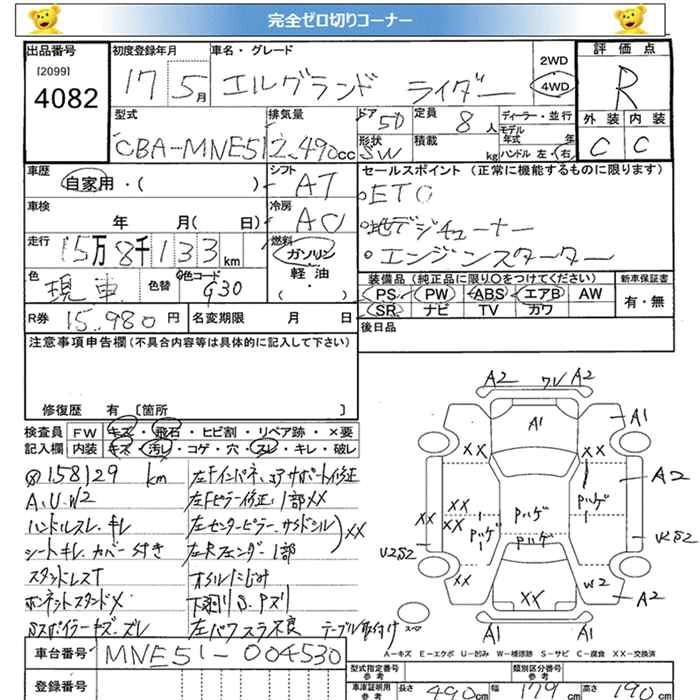 完全ゼロ切りコーナー
出品番号
[2099]
4082
初度登録年月
17 5月
車名・グレード
エルグランド ライダー
2WD
4WD
評価点
R
外装 内装
C C
型式
CBA-MNE51
排気量
2,490cc
ドア
5D
形状
SW
定員
8人
積載
kg
ディーラー・並行
モデル年式 年
ハンドル 左・右
車歴
自家用・( )
シフト
AT
車検
年 月( 日)
冷房
AC
走行
15万8千133km
燃料
ガソリン
軽油
・( )
色
現車
色替
色コード
G30
セールスポイント (正常に機能するものに限ります)
・ETC
・地デジチューナー
・エンジンスターター
装備品 (純正品に限り〇をつけてください)
新車保証書
PS PW ABS エアB AW
SR ナビ TV カワ
有・無
R券 15,980円
名変期限 月 日
後日品
注意事項申告欄(不具合内容等は具体的に記入して下さい)
修復歴 有 [箇所 ]
検査員記入欄
FW キズ・飛石・ヒビ割・リペア跡・×要
内装 キズ・汚レ・コゲ・穴・スレ・キレ・破レ
158129 km
A、U、W2
ハンドルスレ、キレ
シートキレ カバー付き
スタッドレスT
ボンネットスタンド×
Sスポイラーキズ、ズレ
左Fインパネ、コアサポート修正
左Fピラー修正、1部××
左センターピラー、サイドシル ××
左Rフェンダー1部
オイルにじみ
下廻りS、Pズリ
左パワスラ不良 テーブル取付け
A2 ワレ A2
A1
A1
××
××
A2
××
××
Pハゲ
Pハゲ
Pハゲ
Pハゲ
U2S2
××
××
W2
A2
スペア
A1 A1
A-キズ E-エクボ U-凹み W-補修跡 S-サビ C-腐食 ××-交換済
車台番号
MNE51-004530
登録番号
型式指定番号
参考
類別区分番号
参考
車庫証明用
参考
長さ 490cm
幅 179cm
高さ 190cm